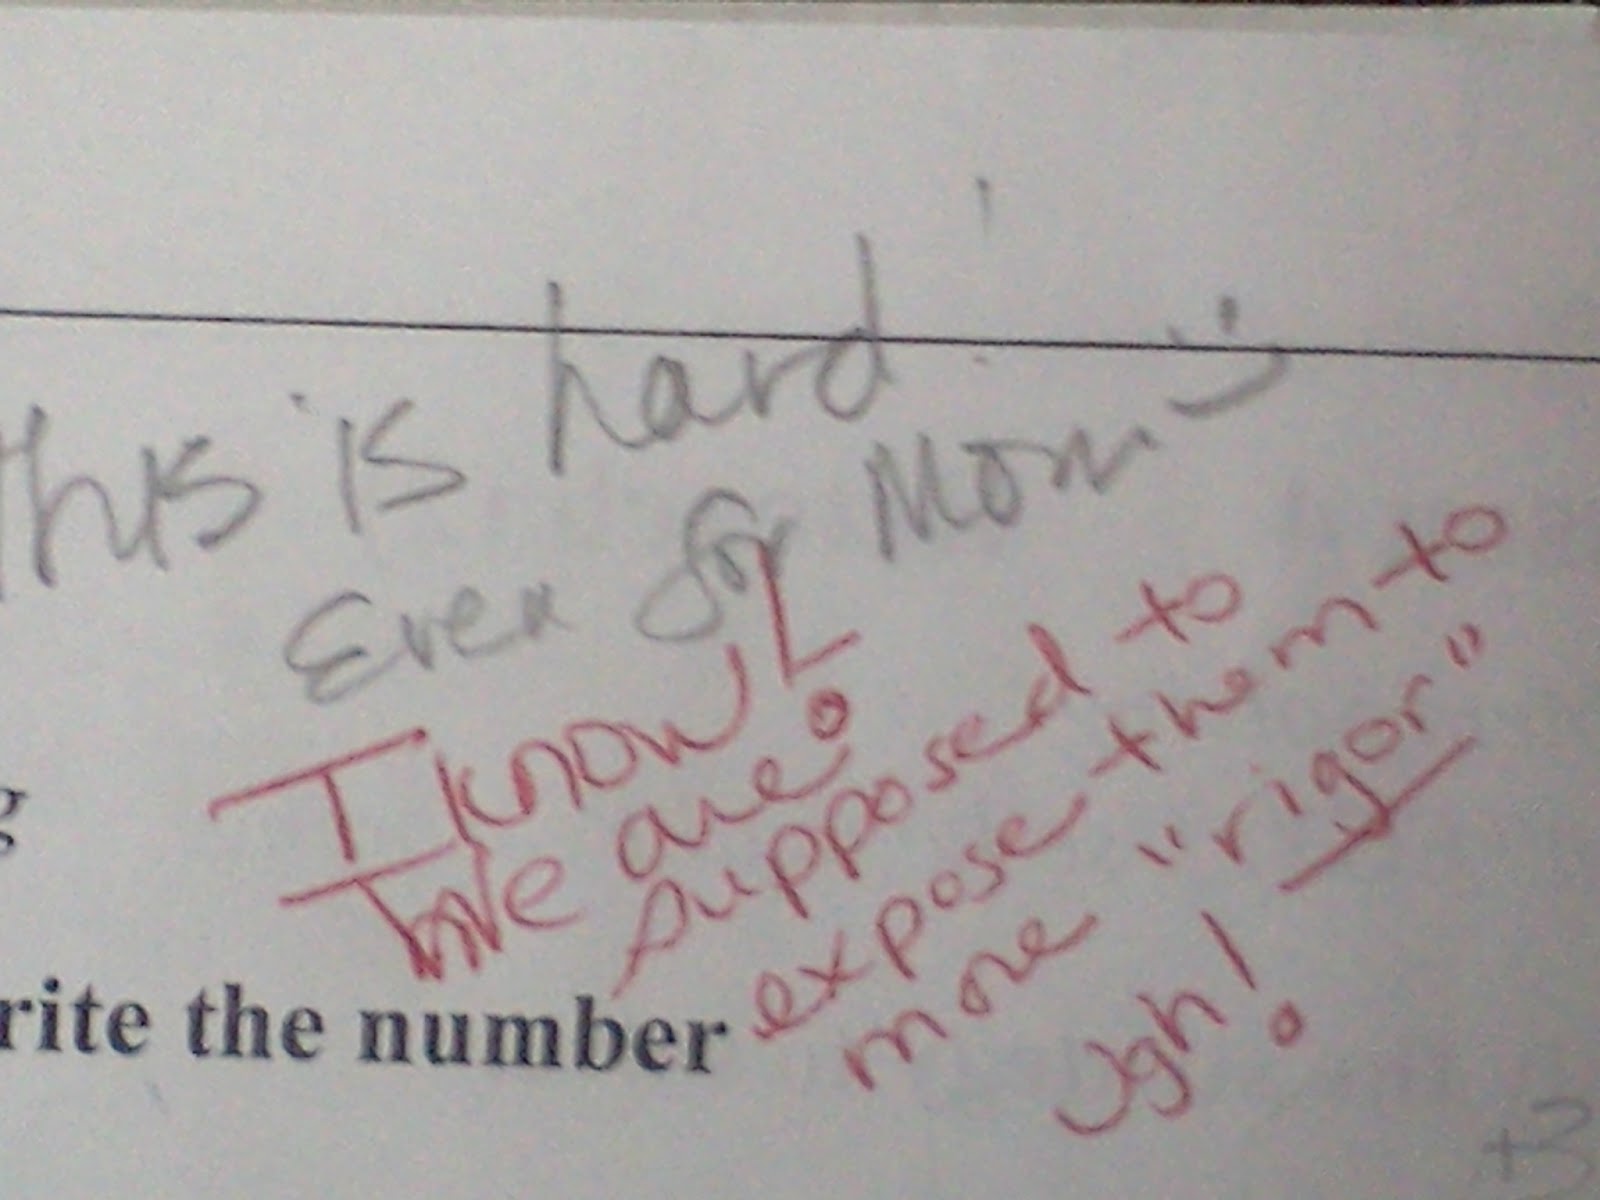 this is hard!
Even for Mom :)
I know!
We are
supposed to
expose them to
more "rigor"
ugh!
g
rite the number